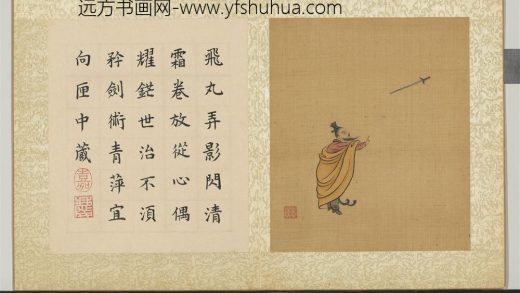 远方书画网-www.yfshuhua.com
飛丸弄影閃清
霜卷放從心偶
耀鋩世治不須
矜劍術青萍宜
向匣中藏